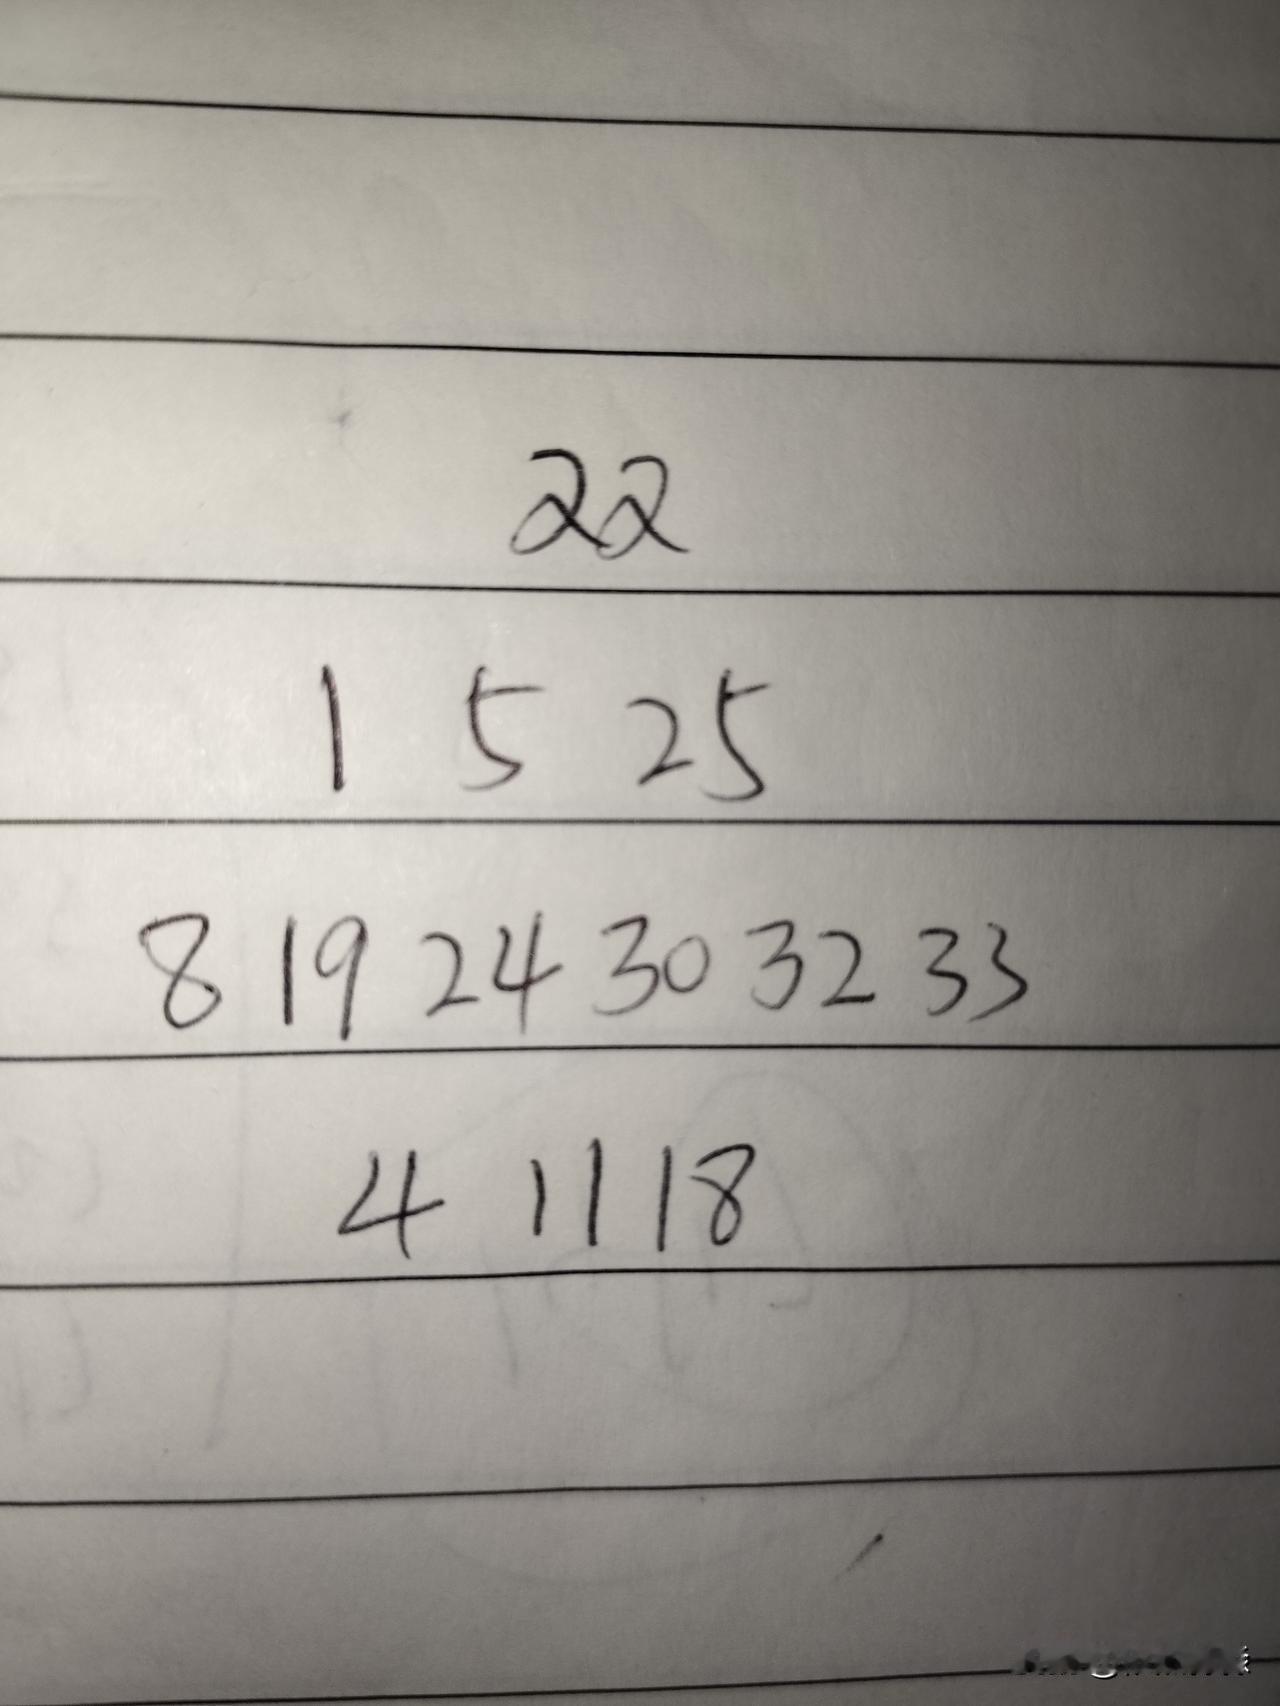 22
1 5 25
8 19 24 30 32 33
4 11 18